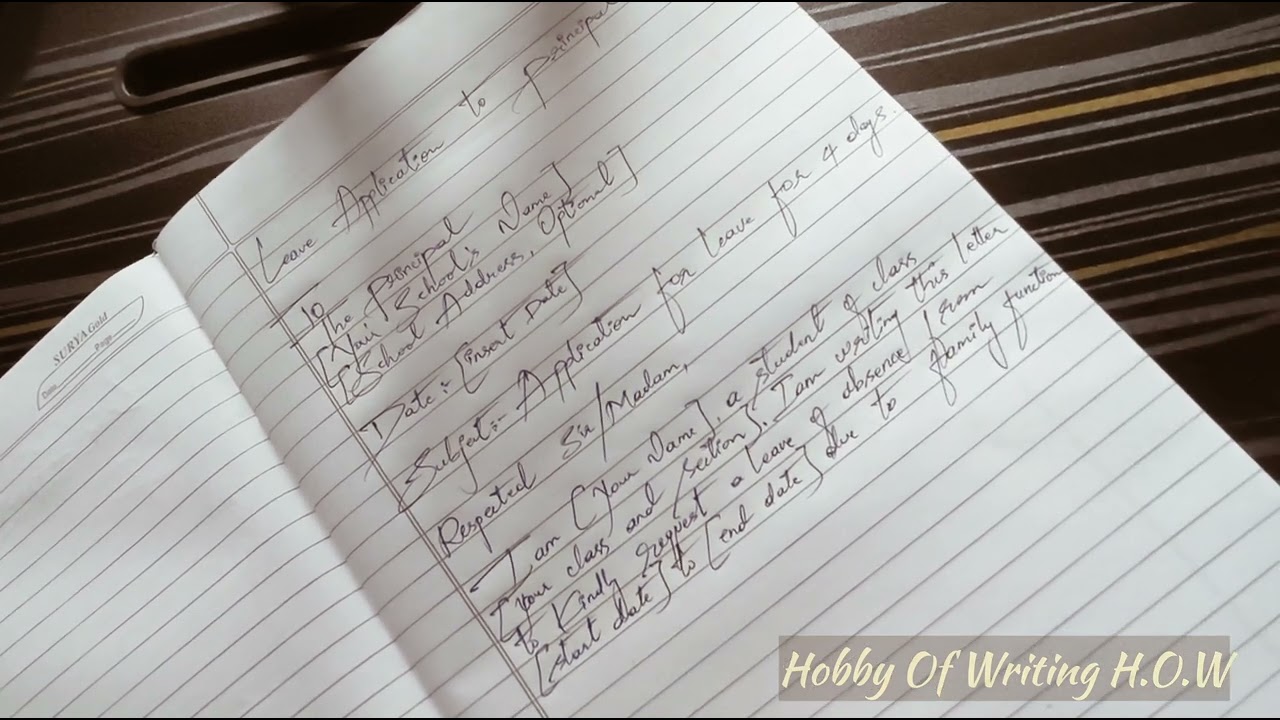 Leave Application to principal
To
The principal
[Your School's Name]
[School Address, Optional]
Date:- [insert Date]
Subject:- Application for leave for 4 days.
Respected Sir/Madam,
I am [Your Name], a student of class
[your class and section]. I am writing this letter
to Kindly request a leave of absence from
[start date] to [end date] due to family function
SURYA Gold
Date
Page
Hobby Of Writing H.O.W